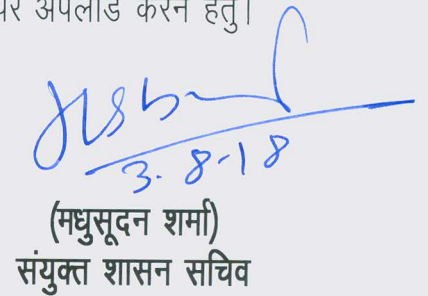 पर अपलोड करने हेतु।
3-8-18
(मधुसूदन शर्मा)
संयुक्त शासन सचिव